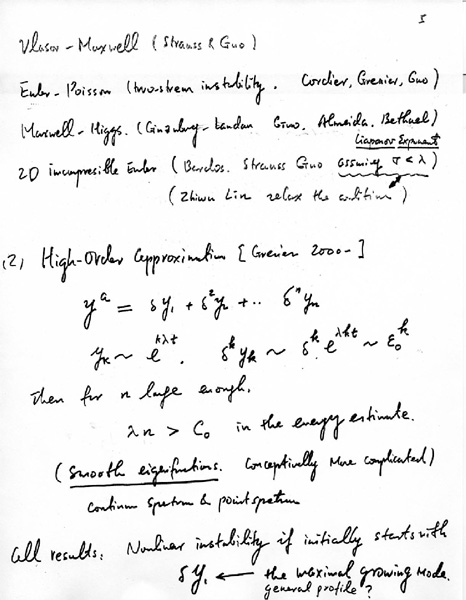 5
Vlasov - Maxwell (Strauss & Guo)
Euler - Poisson (two-stream instability. Cordier, Grenier, Guo)
Maxwell - Higgs. (Ginzburg - Landau Guo. Almeida. Bethuel)
Liapunov Exponent
2D incompressible Euler (Bardos. Strauss Guo assuming σ < λ)
(Zhiwu Lin relax the condition)
(2) High-Order Approximation [Grenier 2000-]
y^a = δy₁ + δ²y₂ + ·· δⁿyₙ
y_k ~ e^{kλt}. δ^k y_k ~ δ^k e^{λkt} ~ ε₀^k
Then for n large enough.
λn > C₀ in the energy estimate.
(Smooth eigenfunctions. Conceptively More complicated)
continuum spectrum & point spectrum
All results: Nonlinear instability if initially starts with
δy₁ ← the maximal growing mode.
general profile?